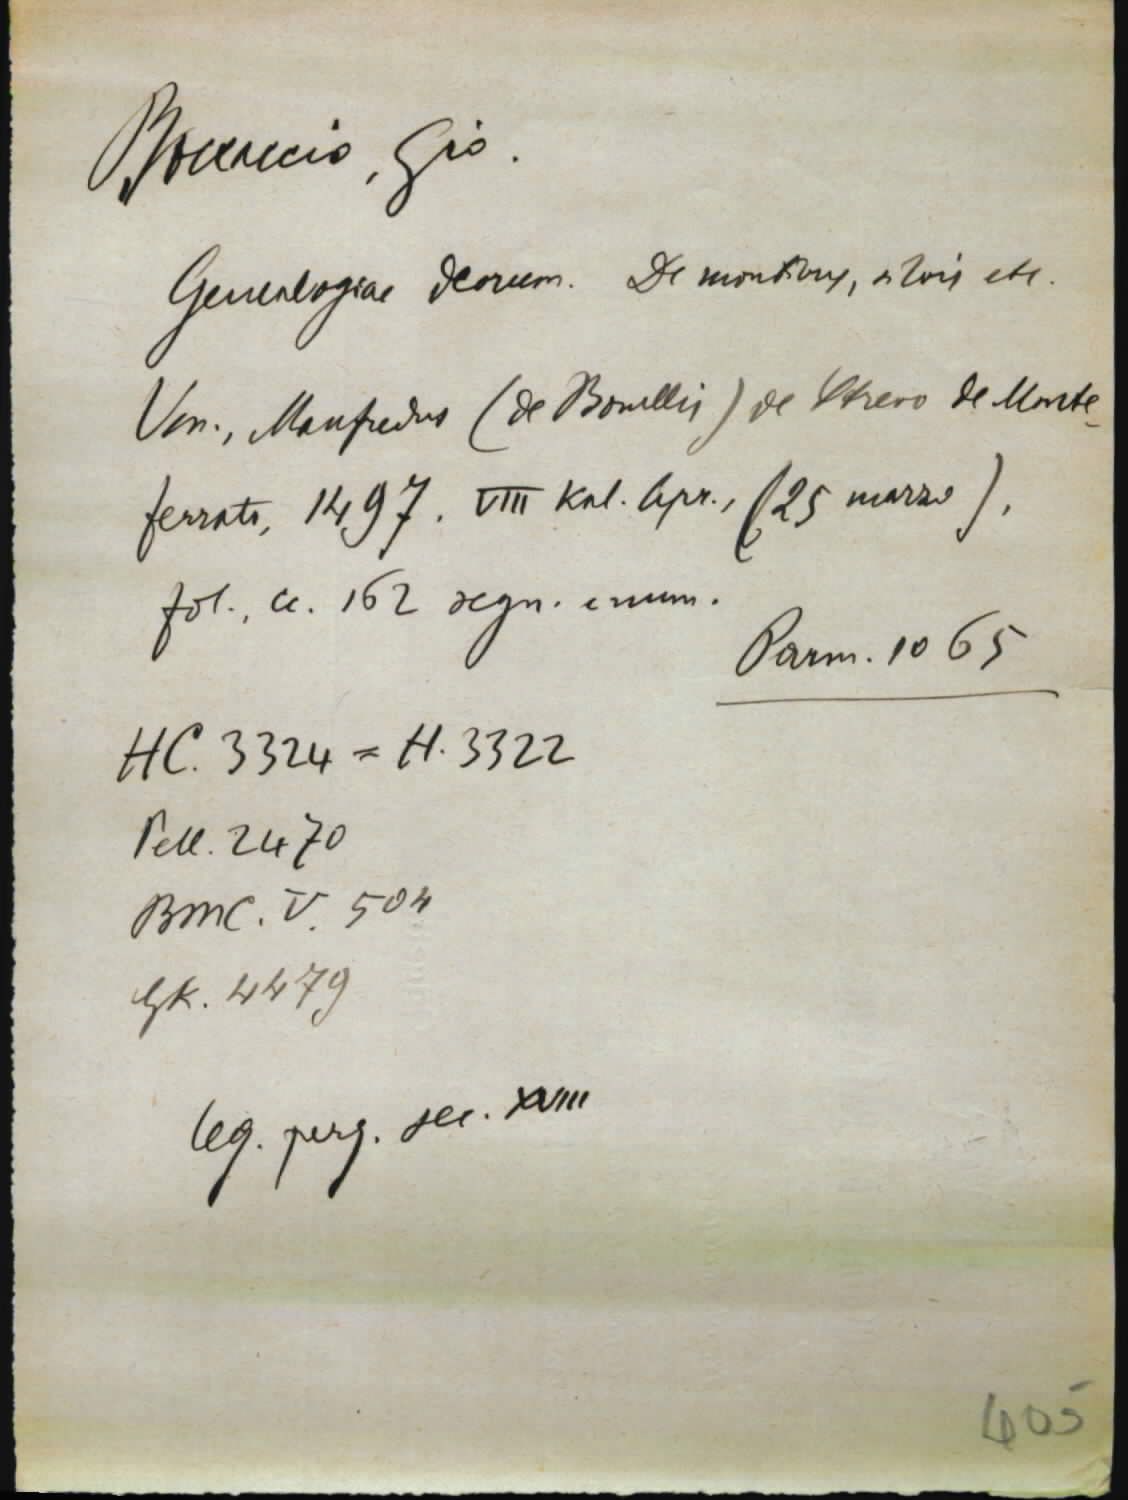 Boccaccio, Gio.
Genealogiae deorum. De montibus, silvis etc.
Ven., Manfredus (de Bonellis) de Strevo de Monte-
ferrato, 1497. VIII Kal. Apr., (25 marzo),
fol., cc. 162 segn. e num.
Parm. 1065
HC. 3324 = H. 3322
Pell. 2470
BMC. V. 504
GK. 4479
leg. perg. sec. XVIII
405